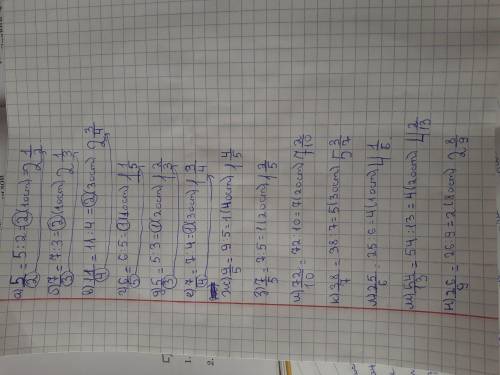 а) 5/2 = 5:2 = 2 (1 ост) = 2 1/2
б) 7/3 = 7:3 = 2 (1 ост) 2 1/3
в) 11/4 = 11:4 = 2 (3 ост) 2 3/4
г) 6/5 = 6:5 = 1 (1 ост) 1 1/5
д) 5/3 = 5:3 = 1 (2 ост) 1 2/3
е) 7/4 = 7:4 = 1 (3 ост) 1 3/4
ж) 9/5 = 9:5 = 1 (4 ост) 1 4/5
з) 7/5 = 7:5 = 1 (2 ост) 1 2/5
и) 72/10 = 72:10 = 7 (2 ост) 7 2/10
к) 38/7 = 38:7 = 5 (3 ост) 5 3/7
л) 25/6 = 25:6 = 4 (1 ост) 4 1/6
м) 54/13 = 54:13 = 4 (2 ост) 4 2/13
н) 26/9 = 26:9 = 2 (8 ост) 2 8/9
1.
2.